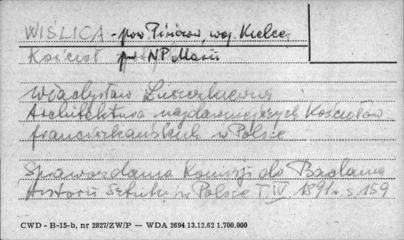 WIŚLICA - pow Pińczów, woj. Kielce
Kościół p.w. N.P. Marii
Władysław Łuszczkiewicz
Architektura najdawniejszych Kościołów
franciszkańskich w Polsce
Sprawozdania Komisji do Badania
Historii Sztuki w Polsce T. IV 1891 r. s. 159
CWD - B-15-b, nr 2827/ZW/P — WDA 2694 13.12.62 1.700.000